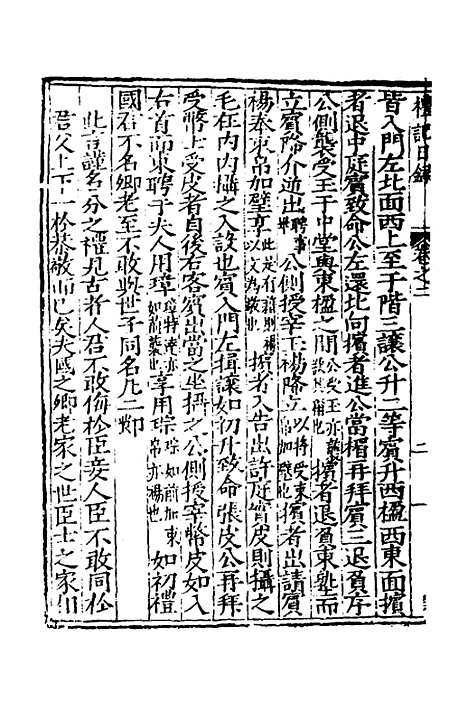 禮記日錄 卷之二 二
皆入門左北面西上至于階三讓公升二等賓升西楹西東面擯
者退中庭賓致命公左還北向擯者進公當楣再拜賓三退負序
公側襲受玉于中堂與東楹之間 擯者退負東塾而
立賓降介逆出 公側授宰玉裼降立 擯者出請賓
裼奉束帛加璧享 擯者入告出許庭實皮則攝之
毛在內內攝之入設也賓入門左揖讓如初升致命張皮公再拜
受幣士受皮者自後右客賓出當之坐攝之公側授宰幣皮如入
右首而東聘于夫人用璋 享用琮 如初禮
國君不名卿老至不敢與世子同名凡二節
此言謹名分之禮見古者人君不敢侮於臣妾人臣不敢同於
君父上下一於恭敬而已矣夫國之卿老家之世臣士之家相